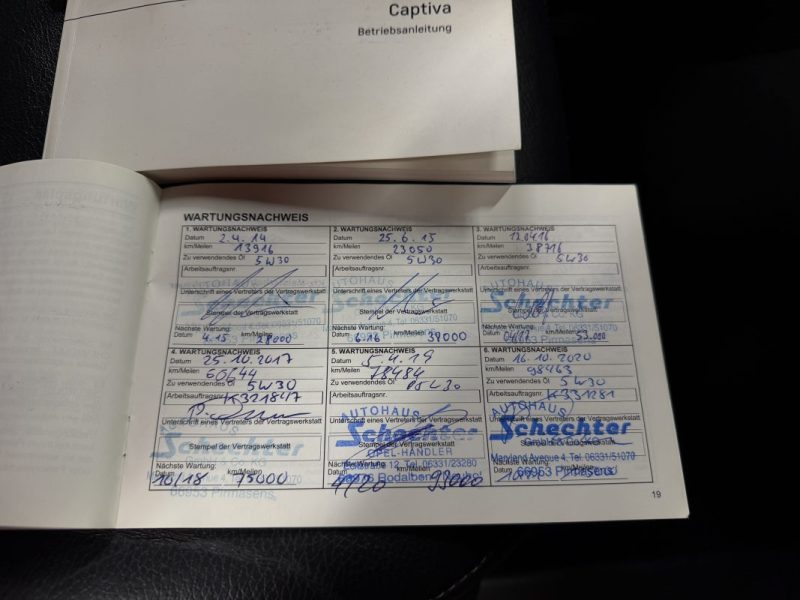 Captiva
Betriebsanleitung
WARTUNGSNACHWEIS
1. WARTUNGSNACHWEIS
Datum 2.4.14
km/Meilen 13916
Zu verwendendes Öl 5W30
Arbeitsauftragsnr.
Unterschrift eines Vertreters der Vertragswerkstatt
Stempel der Vertragswerkstatt
Nächste Wartung:
Datum 4.15 km/Meilen 28000
2. WARTUNGSNACHWEIS
Datum 25.6.15
km/Meilen 23050
Zu verwendendes Öl 5W30
Arbeitsauftragsnr.
AUTOHAUS
Unterschrift eines Vertreters der Vertragswerkstatt
Schechter
Stempel der Vertragswerkstatt
Tel. 06331/51070
Nächste Wartung:
Datum 6.16 km/Meilen 39000
Pirmasens
3. WARTUNGSNACHWEIS
Datum 12.04.16
km/Meilen 38716
Zu verwendendes Öl 5W30
Arbeitsauftragsnr.
AUTOHAUS
Unterschrift eines Vertreters der Vertragswerkstatt
Schechter
Stempel der Vertragswerkstatt
Tel. 06331/51070
Nächste Wartung:
Datum 04.17 km/Meilen 53.000
66953 Pirmasens
4. WARTUNGSNACHWEIS
Datum 25.10.2017
km/Meilen
Zu verwendendes Öl 5W30
Arbeitsauftragsnr. K321847
Unterschrift eines Vertreters der Vertragswerkstatt
Schechter
Stempel der Vertragswerkstatt
Nächste Wartung:
Datum 10/18 km/Meilen 75000
66953 Pirmasens
5. WARTUNGSNACHWEIS
Datum 5.4.19
km/Meilen 78484
Zu verwendendes Öl 5W30
Arbeitsauftragsnr.
AUTOHAUS
Unterschrift eines Vertreters der Vertragswerkstatt
Schechter
Stempel der Vertragswerkstatt
OPEL-HÄNDLER
12, Tel. 06331/23280
Nächste Wartung:
Datum 4/20 km/Meilen 93000
66976 Rodalben
6. WARTUNGSNACHWEIS
Datum 16.10.2020
km/Meilen 98463
Zu verwendendes Öl 5W30
Arbeitsauftragsnr. K331281
AUTOHAUS
Unterschrift eines Vertreters der Vertragswerkstatt
Schechter
Stempel der Vertragswerkstatt
GmbH & Co. KG
Maryland Avenue 4, Tel. 06331/51070
Nächste Wartung:
Datum km/Meilen
66953 Pirmasens
19